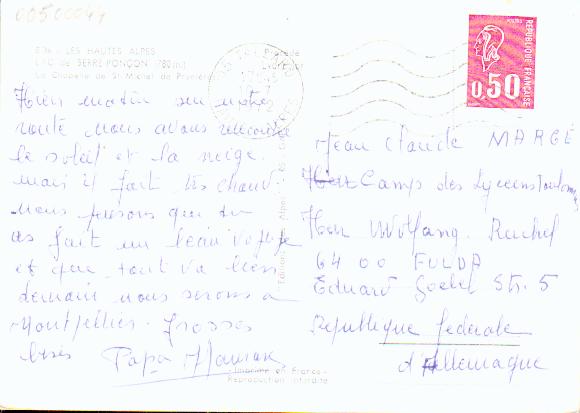 00500044
LES HAUTES ALPES
LAC de SERRE-PONÇON (780 m)
La Chapelle de St Michel de Prunières
Hier matin sur notre
route nous avons rencontré
le soleil et la neige.
mais il fait très chaud
nous pensons que tu
as fait un beau voyage
et que tout va bien
demain nous serons a
Montpellier. Grosses
bises Papa Maman
REPUBLIQUE FRANÇAISE
POSTES
0,50
Jean Claude MARGE
Camp des Lyceens
Herr Wolfgang
64 00 FULDA
Eduard Str. 5
Republique federale
d'Allemagne
Imprimé en France
Reproduction interdite